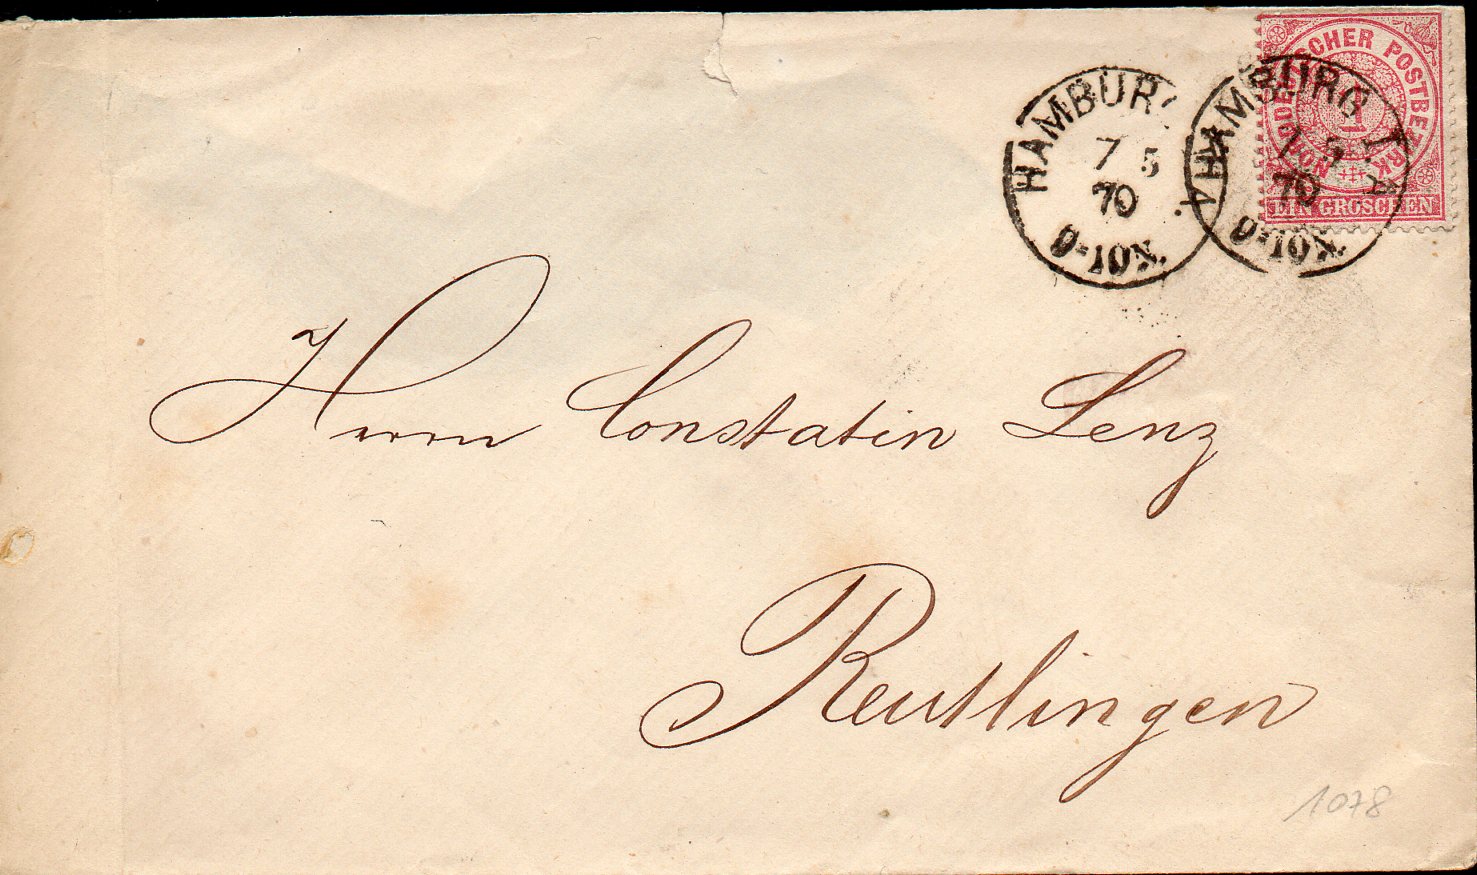 HAMBUR
7 5
70
9-10N.
HAMBURG I.A.
7 5
70
9-10N.
NORDDEUTSCHER POSTBEZIRK
1
EIN GROSCHEN
Herrn Constatin Lenz
Reutlingen
1078